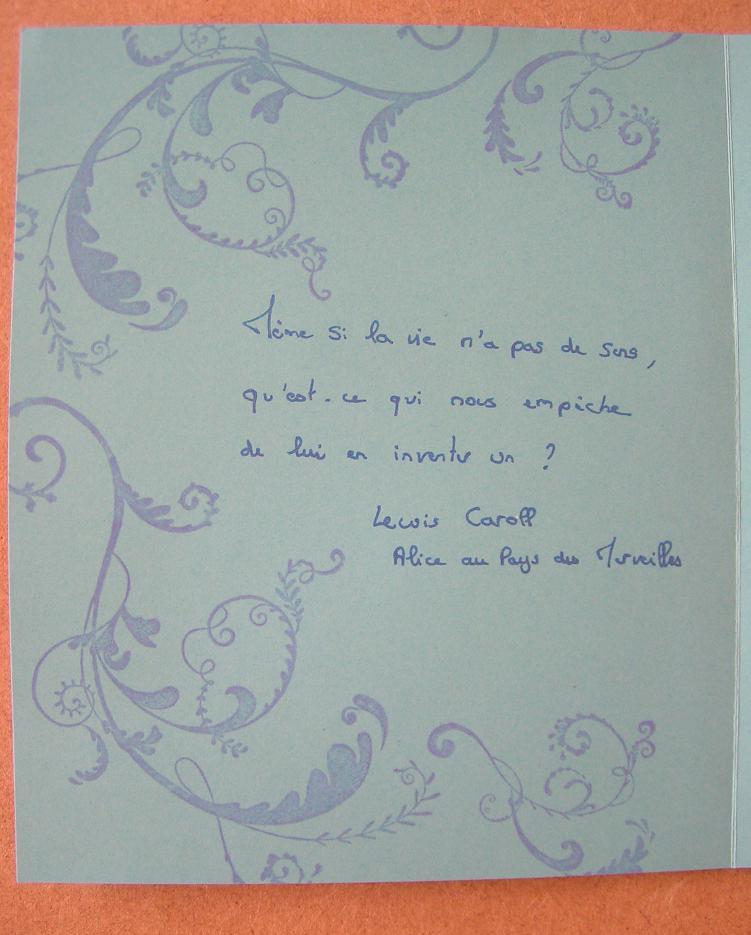 Même si la vie n'a pas de sens,
qu'est-ce qui nous empêche
de lui en inventer un ?
Lewis Caroll
Alice au Pays des Merveilles